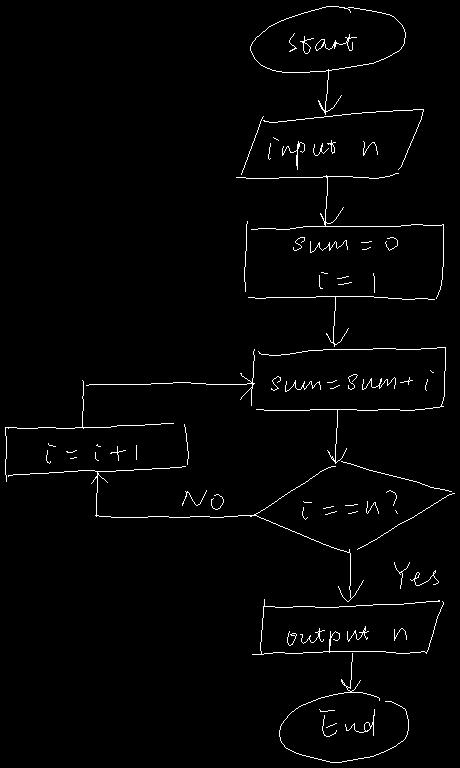 start
input n
sum = 0
i = 1
sum = sum + i
i = i + 1
No
i == n?
Yes
output n
End